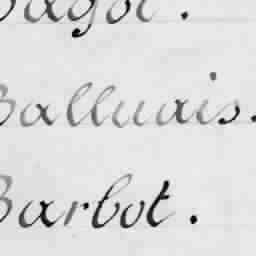 Bagot.
Balluais.
Barbot.